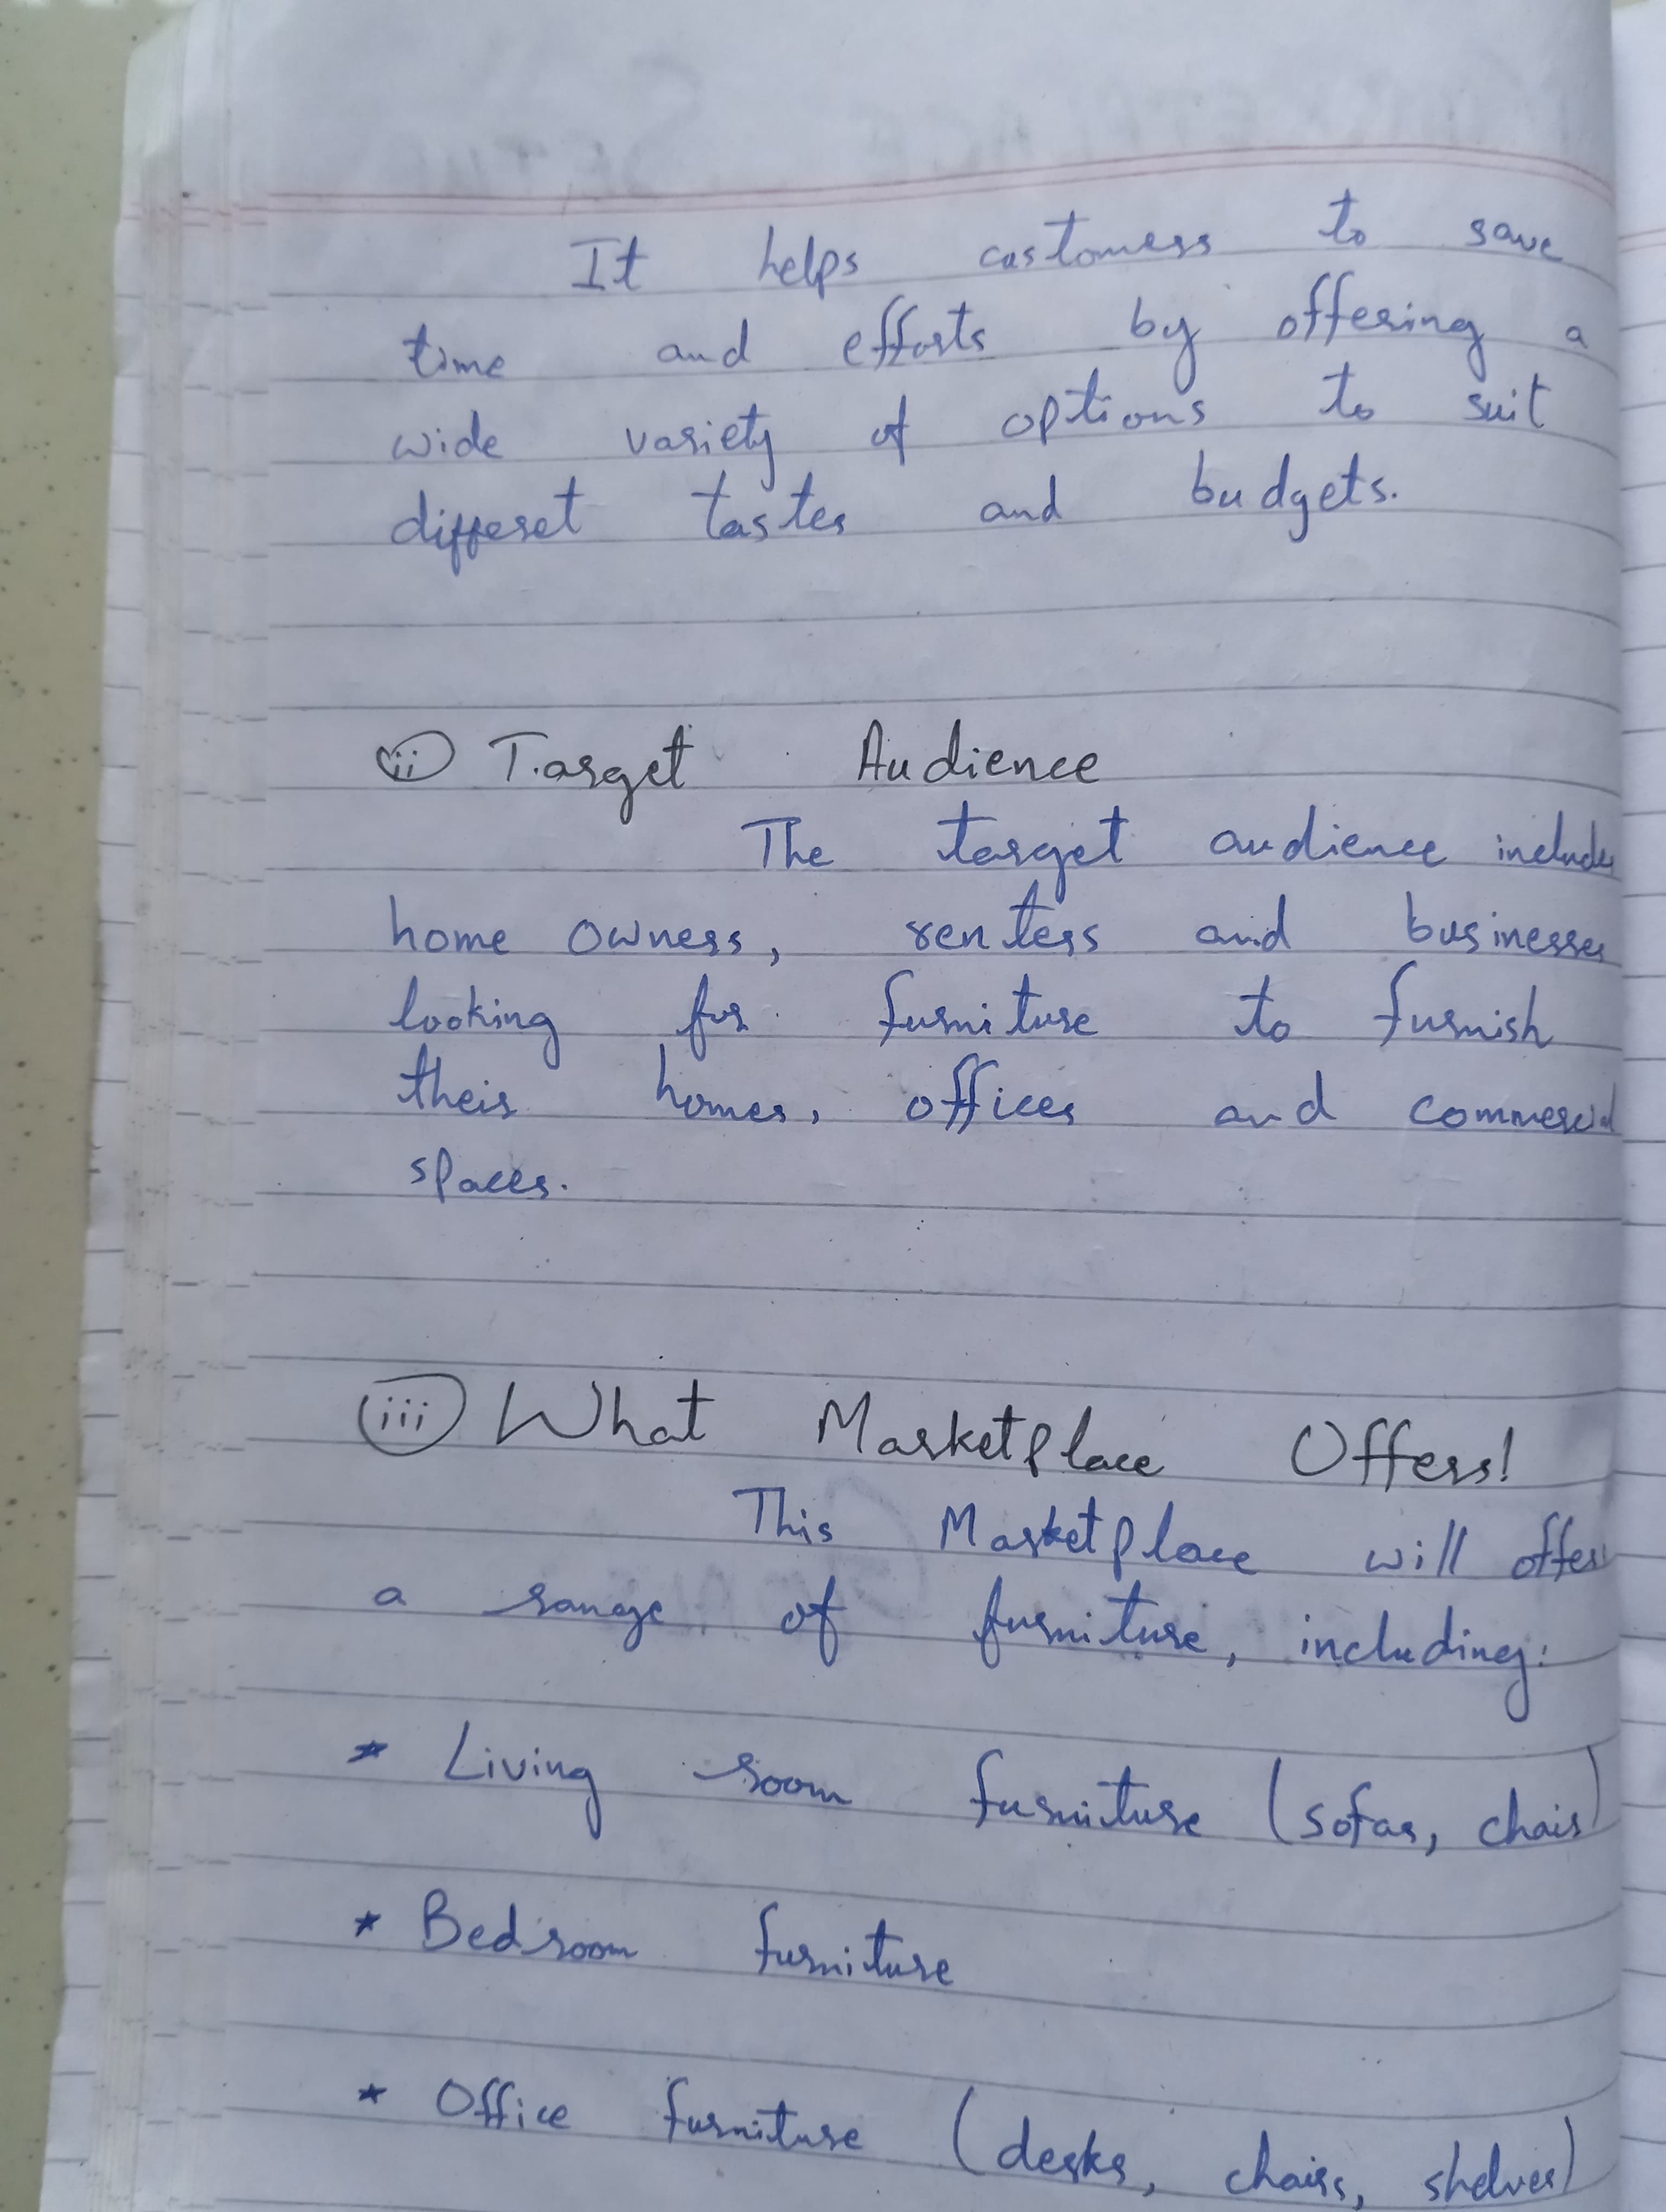 It helps customers to save
time and efforts by offering a
wide variety of options to suit
differet tastes and budgets.
(ii) Target Audience
The target audience includes
home owners, renters and businesses
looking for furniture to furnish
their homes, offices and commercial
spaces.
(iii) What Marketplace Offers!
This Marketplace will offer
a range of furniture, including:
* Living room furniture (sofas, chair)
* Bedroom furniture
* Office furniture (desks, chairs, shelves)